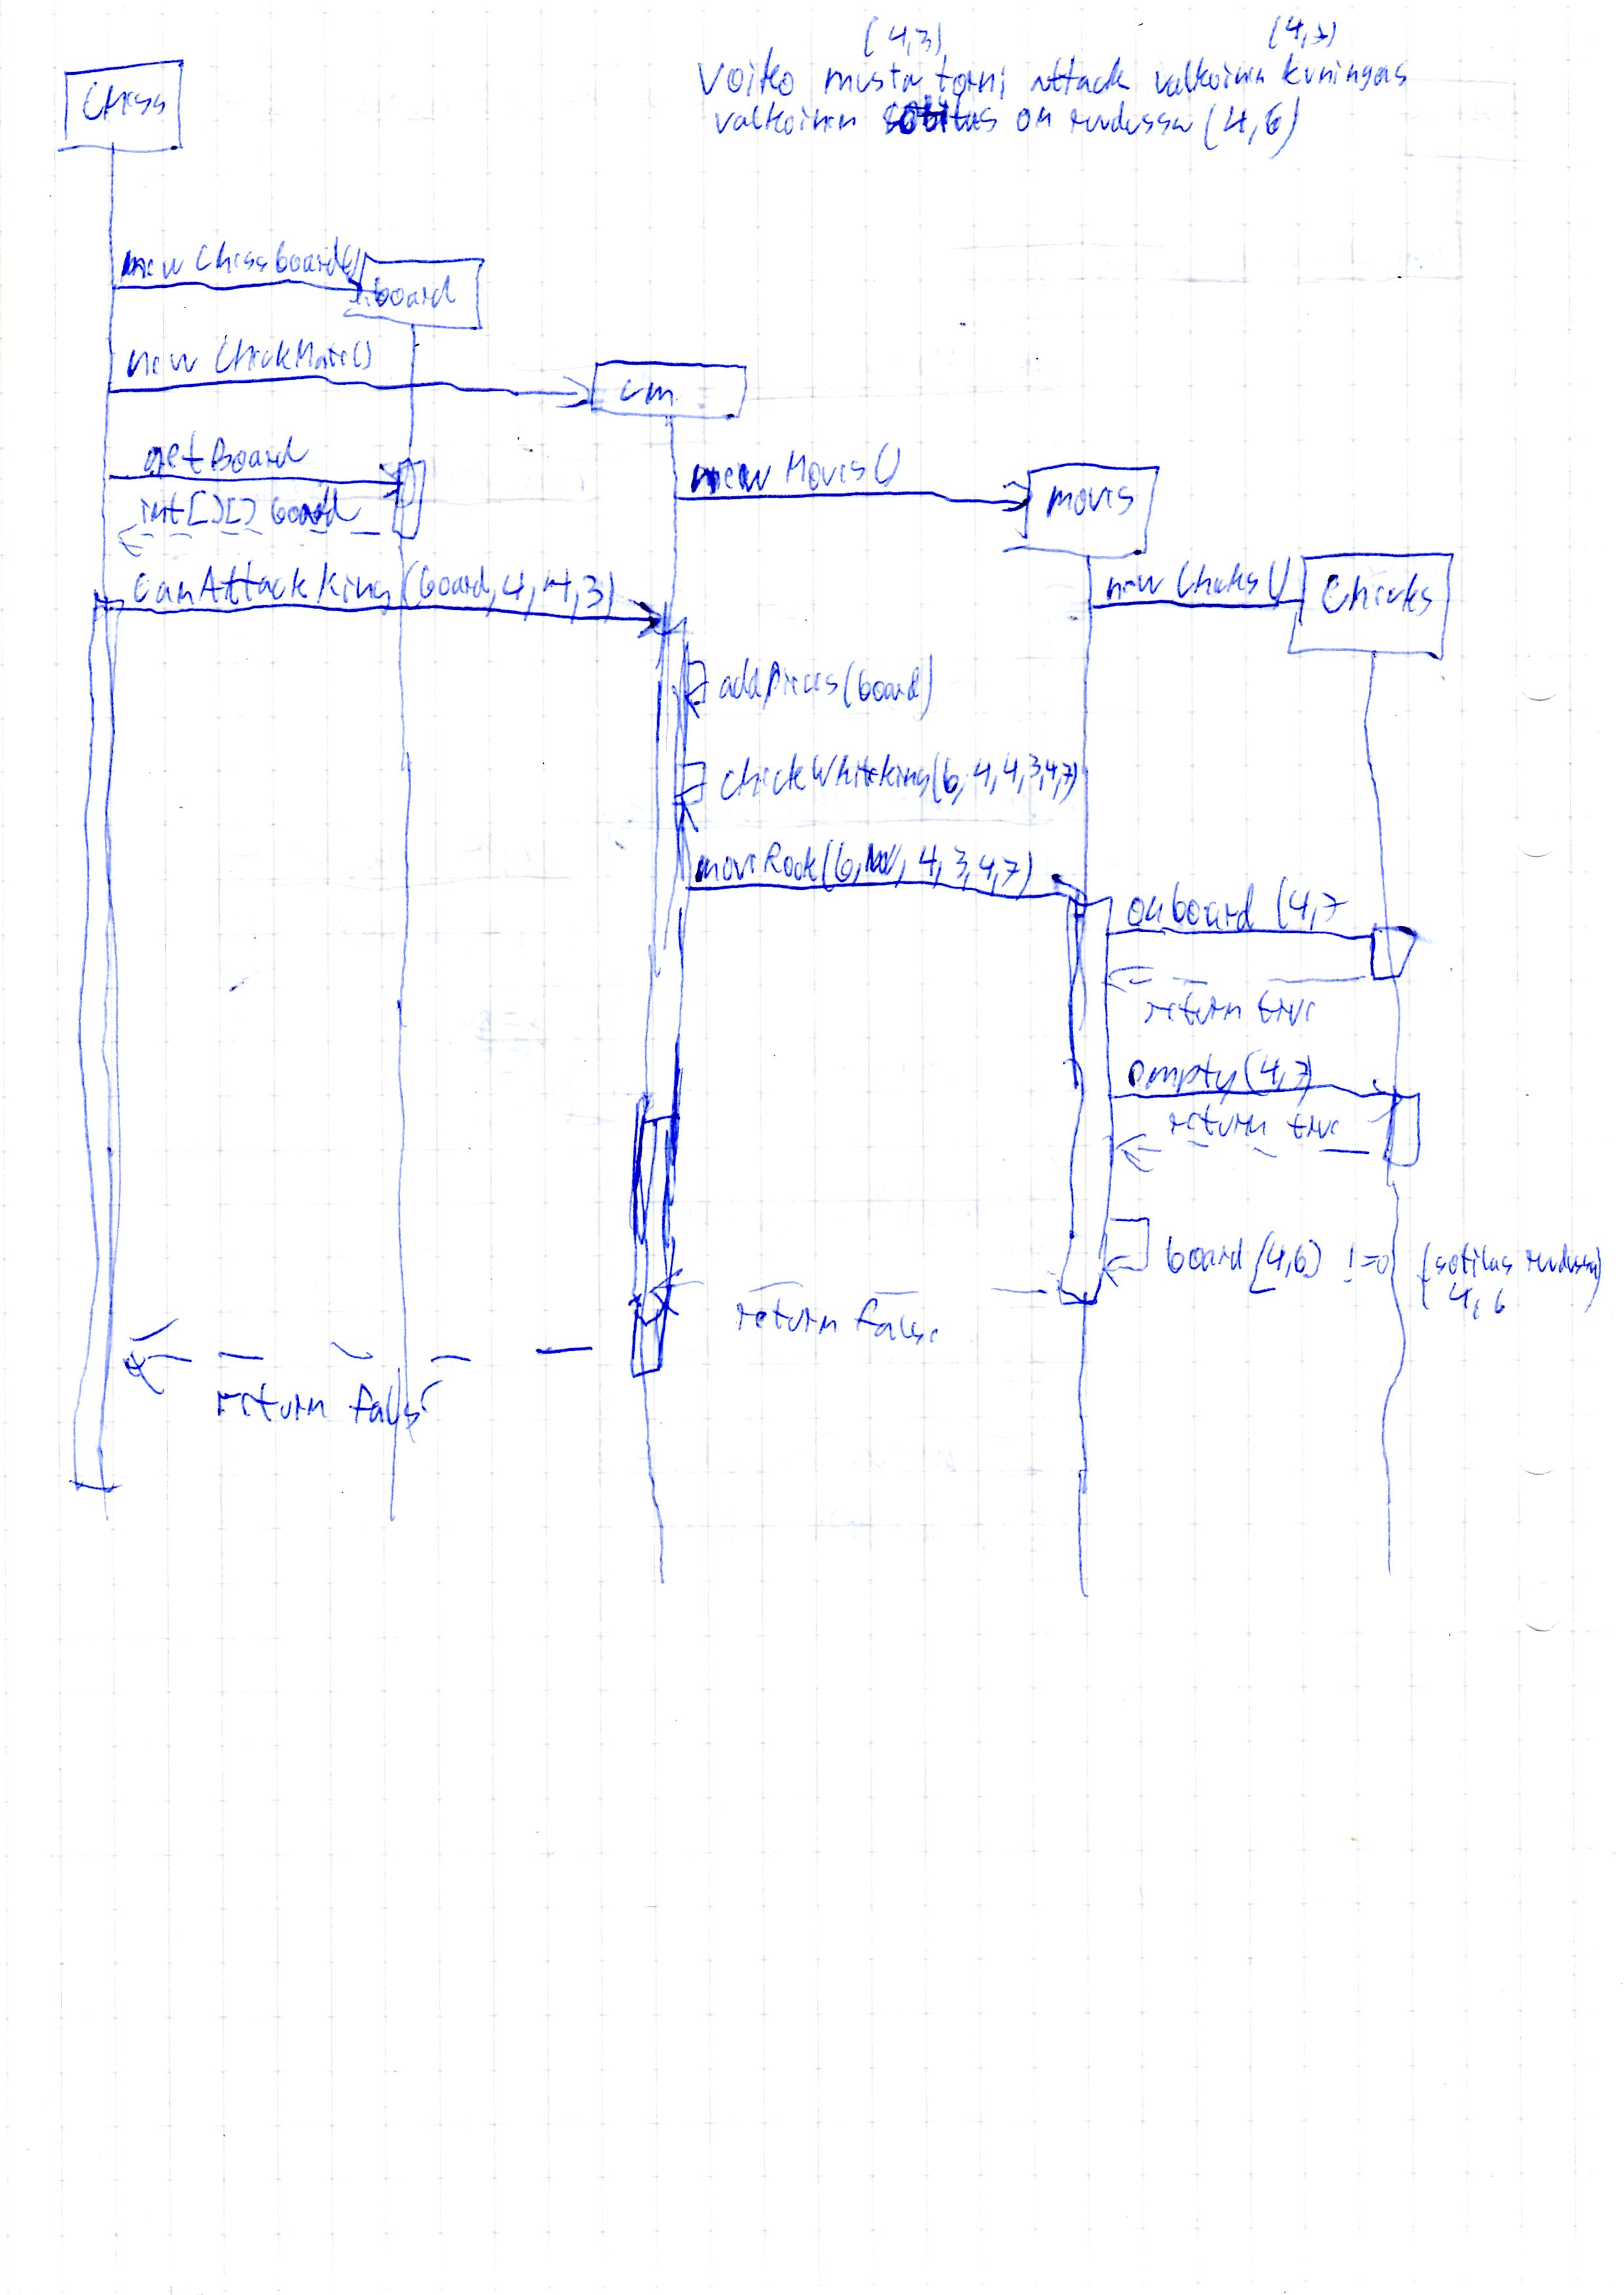 (4,3) (4,7)
Voiko musta torni attack valkoinen kuningas
valkoinen sotilas on ruudussa (4,6)
Chess
new Chessboard()
board
new CheckMate()
cm
getBoard
new Moves()
moves
int[][] board
canAttackKing(board, 4, 4, 3)
new Checks()
Checks
addPieces(board)
checkWhiteKing(6, 4, 4, 3, 4, 7)
moveRook(6, 4, 3, 4, 7)
onboard (4,7
return true
empty(4,7)
return true
board[4,6) !=0 (sotilas ruudussa)
4,6
return false
return false